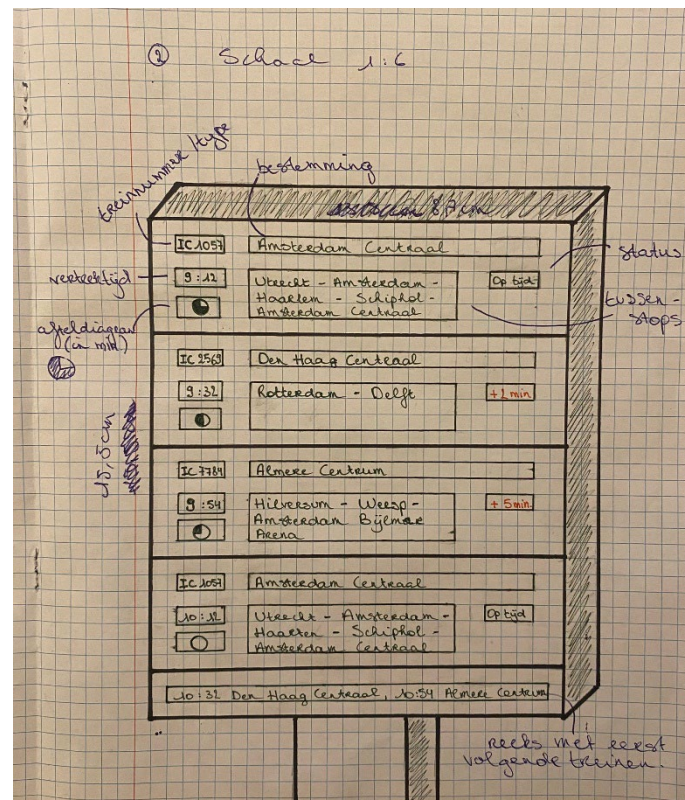 ② Schaal 1:6
treinnummer/type
bestemming
IC 1057
Amsterdam Centraal
status
vertrektijd
9:12
Utrecht - Amsterdam -
Haarlem - Schiphol -
Amsterdam Centraal
Op tijd
tussen-
stops
(in min.)
IC 2569
Den Haag Centraal
9:32
Rotterdam - Delft
+1 min
15,5cm
IC 7784
Almere Centrum
9:54
Hilversum - Weesp -
Amsterdam Bijlmer
Arena
+5min
IC 1057
Amsterdam Centraal
10:12
Utrecht - Amsterdam -
Haarlem - Schiphol -
Amsterdam Centraal
Op tijd
10:32 Den Haag Centraal, 10:54 Almere Centrum
reeks met eerst
volgende treinen.